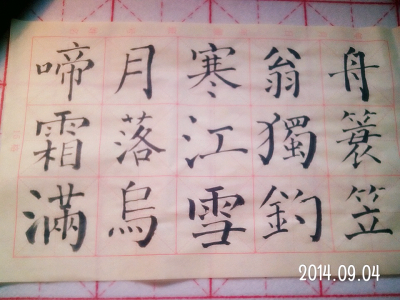 舟簑笠
翁獨釣
寒江雪
月落烏
啼霜滿
2014.09.04